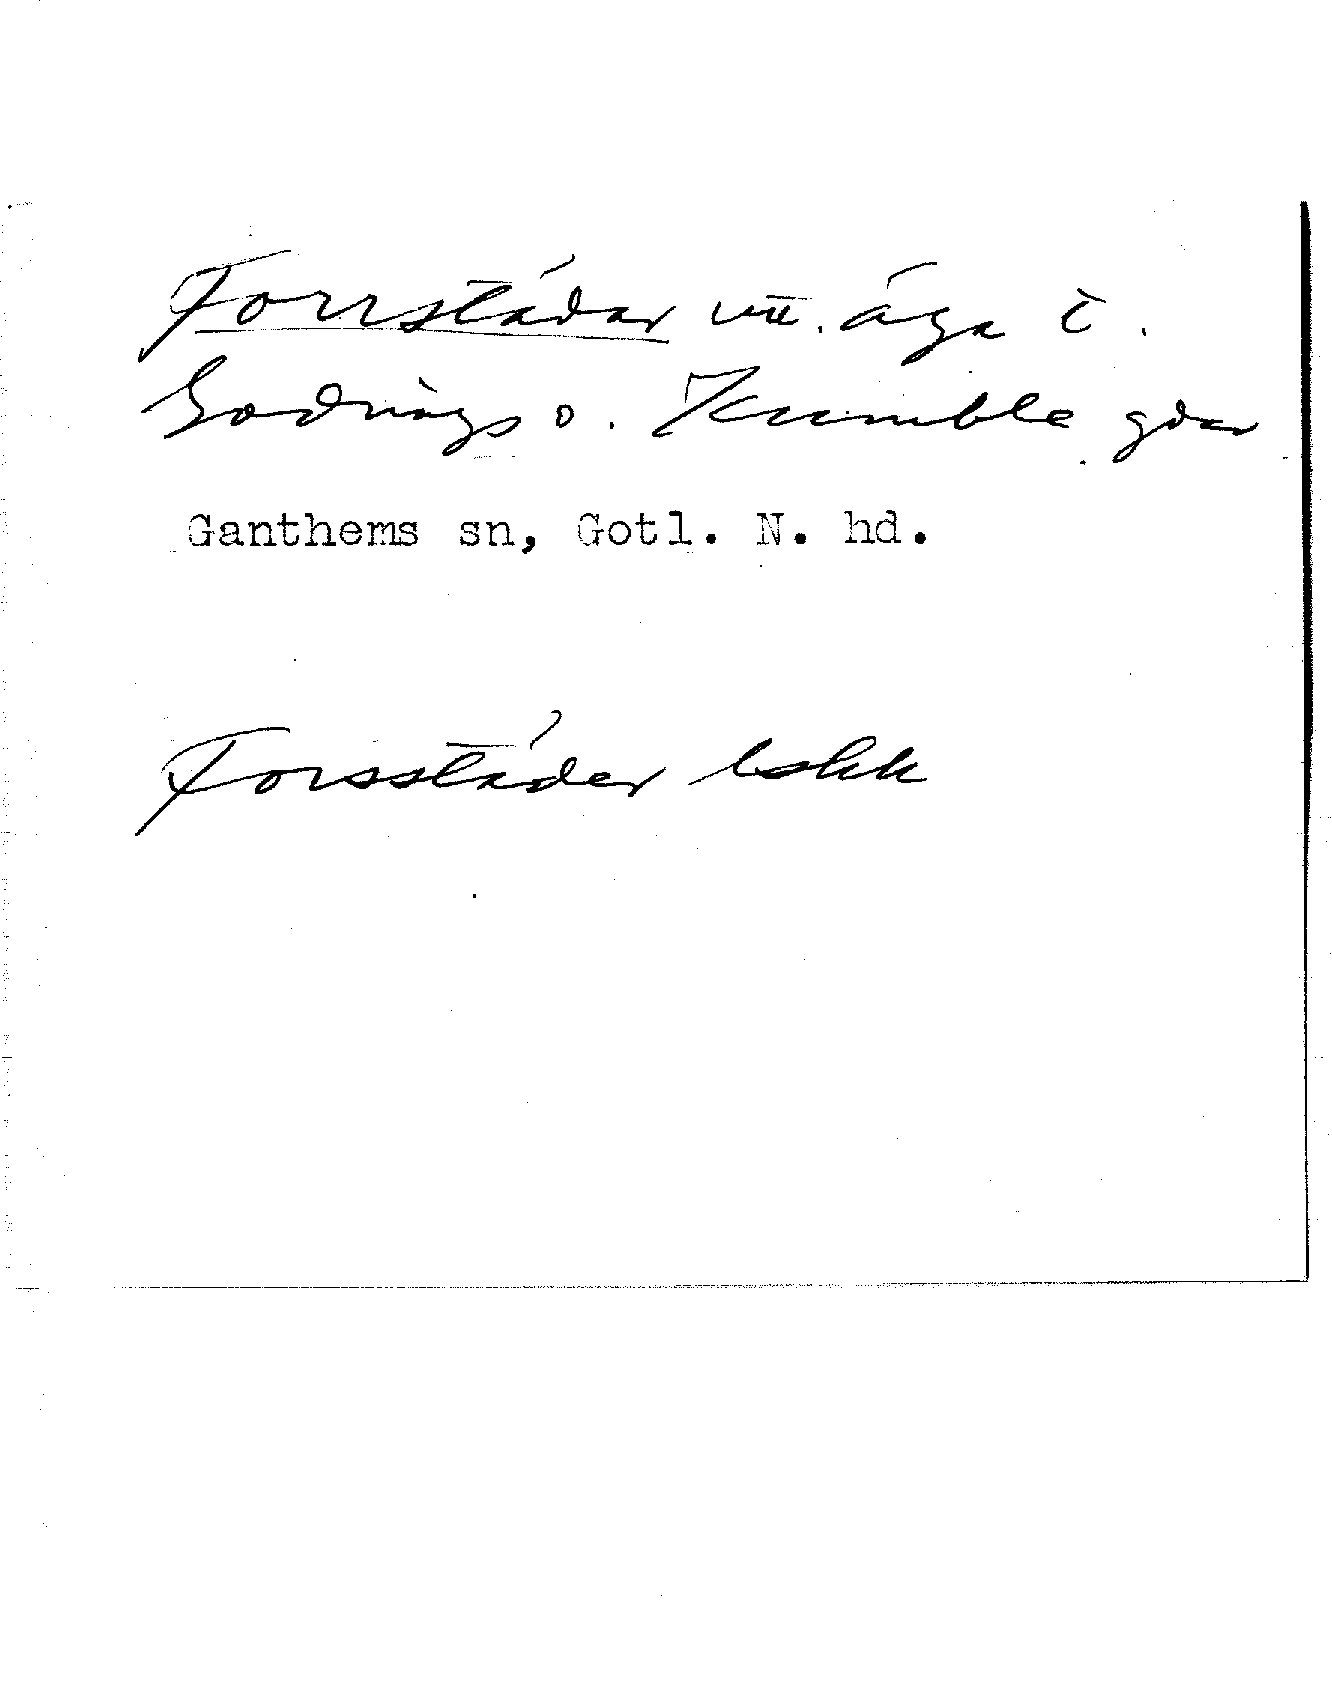 Forrstädar utt. äga i.
Godrings o. Kumble gdar
Ganthems sn, Gotl. N. hd.
Forsstäder bskk